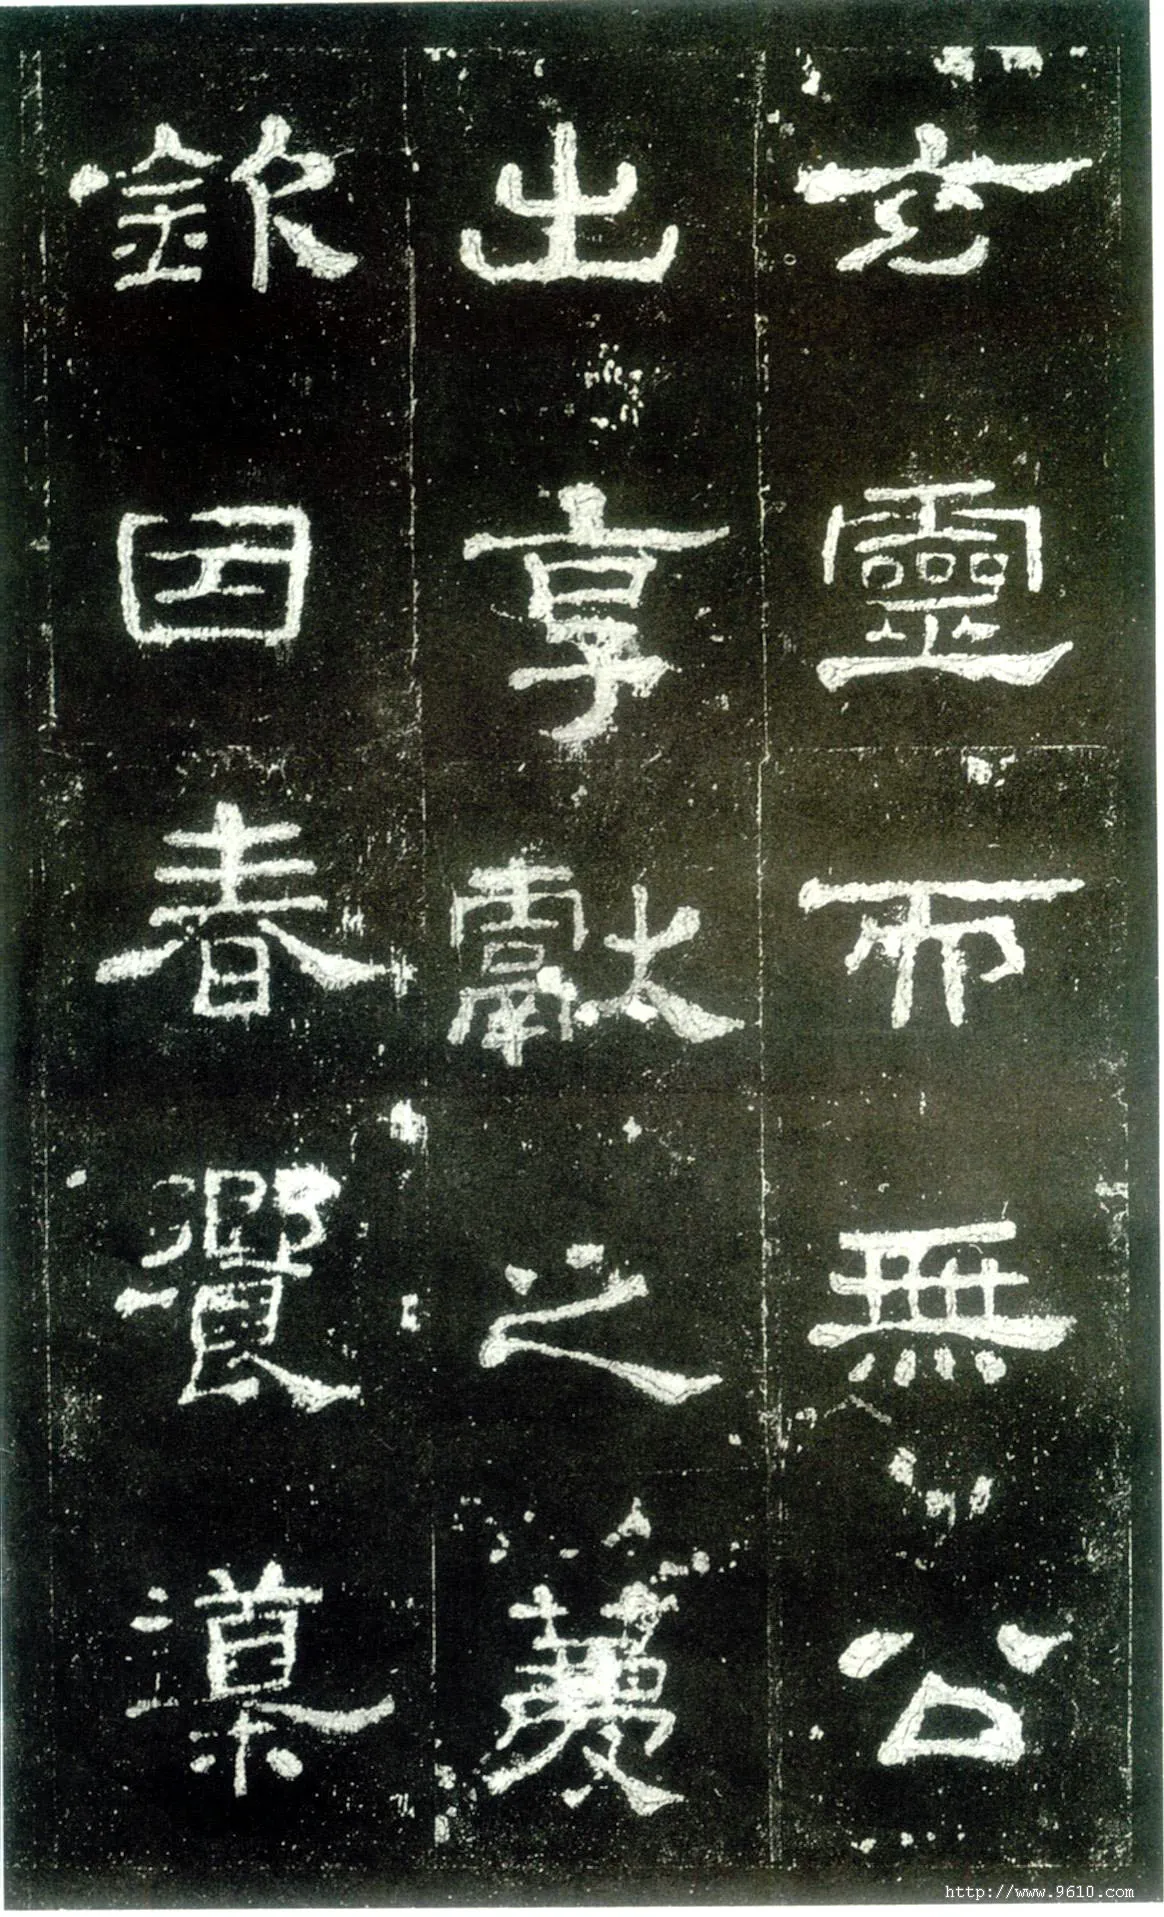 玄靈而無公
出享獻之薦
欽因春饗導
http://www.9610.com